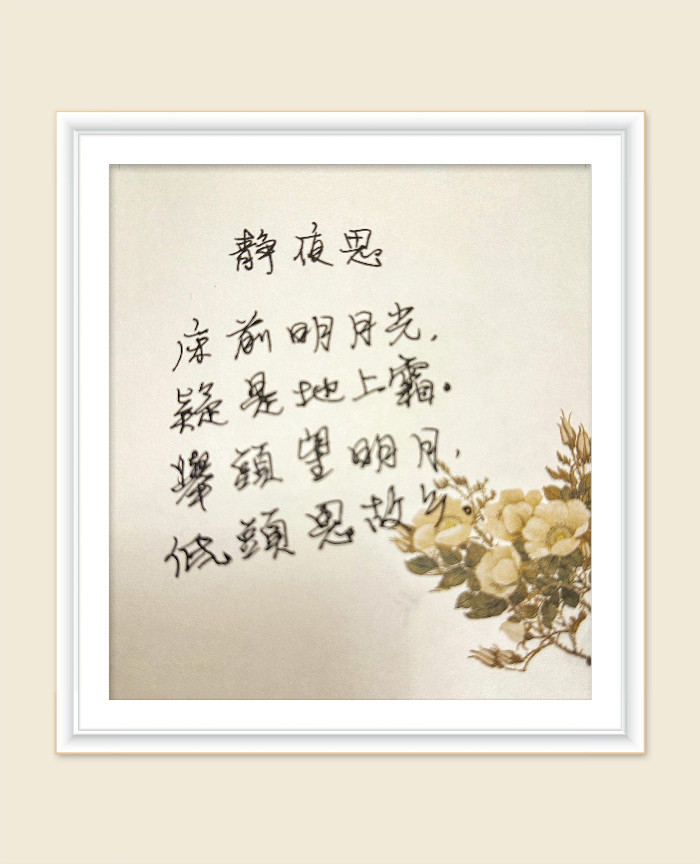 静夜思
床前明月光,
疑是地上霜.
舉頭望明月,
低頭思故乡.